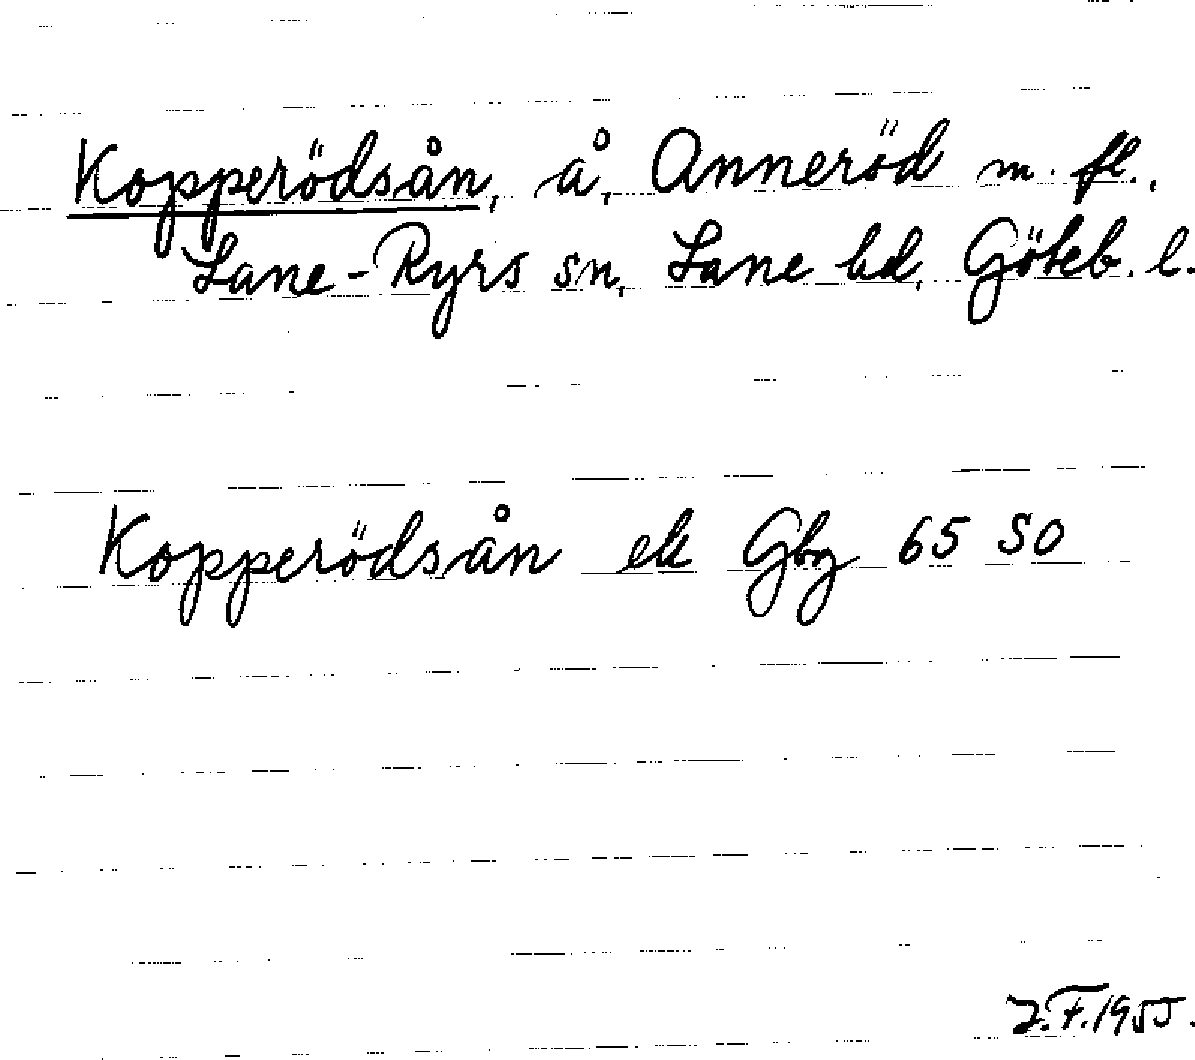 Kopperödsån, å, Anneröd m. fl.,
Lane-Ryrs sn, Lane hd, Göteb. l.
Kopperödsån ek Gbg 65 SO
J.F.1955.